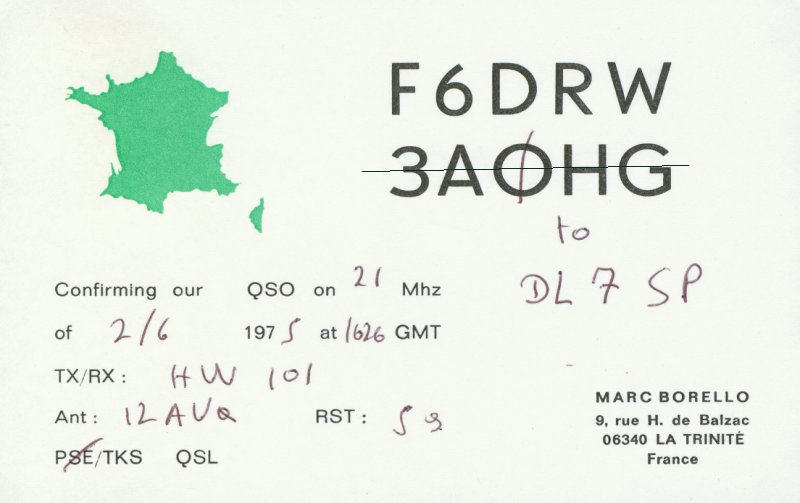 F6DRW
3AØHG
to
DL7SP
Confirming our QSO on 21 Mhz
of 2/6 1975 at 1626 GMT
TX/RX : HW 101
Ant : 12AVQ RST : 59
PSE/TKS QSL
MARC BORELLO
9, rue H. de Balzac
06340 LA TRINITÉ
France